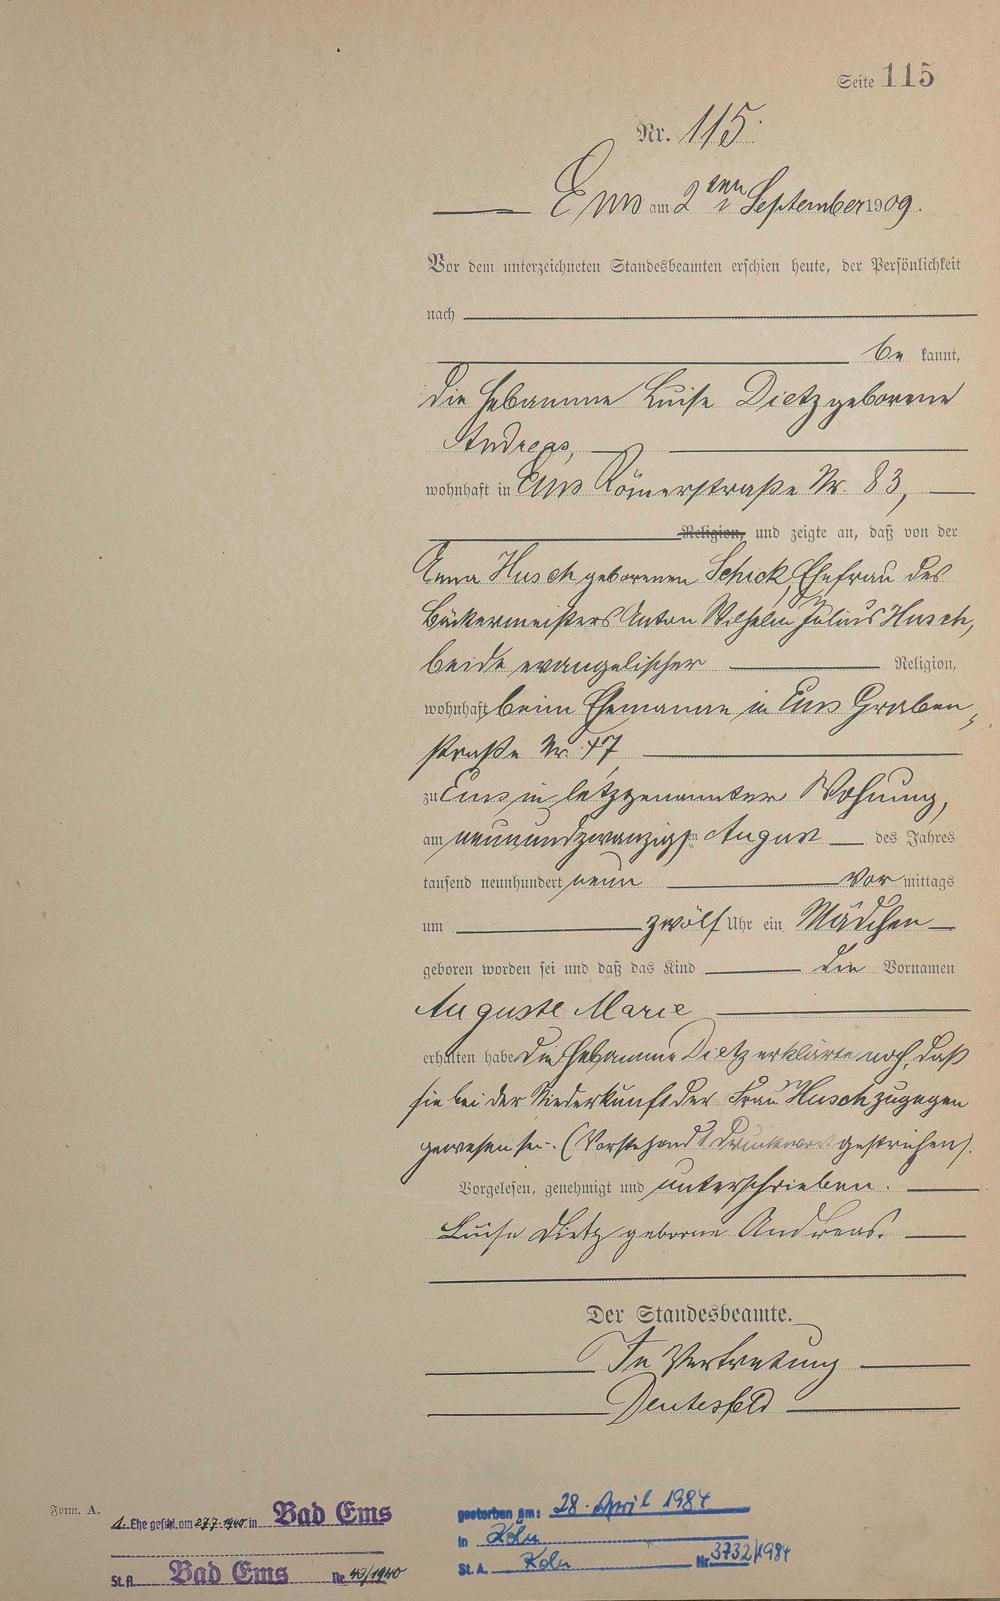 Seite 115
Nr. 115.
Ems am 2ten September 1909.
Vor dem unterzeichneten Standesbeamten erschien heute, der Persönlichkeit
nach
be kannt,
die Hebamme Luise Dietz geborene
Andreas,
wohnhaft in Ems Römerstraße Nr. 83,
Religion, und zeigte an, daß von der
Anna Husch geborenen Schick, Ehefrau des
Bäckermeisters Anton Wilhelm Julius Husch,
beide evangelischer Religion,
wohnhaft beim Ehemanne in Ems Graben-
straße Nr. 47
zu Ems in letztgenannter Wohnung,
am neunundzwanzigsten August des Jahres
tausend neunhundert neun Vor mittags
um zwölf Uhr ein Mädchen
geboren worden sei und daß das Kind die Vornamen
Auguste Marie
erhalten habe Die Hebamme Dietz erklärte noch, daß
sie bei der Niederkunft der Frau Husch zugegen
gewesen sei. (Vorstehend 1 Druckwort gestrichen).
Vorgelesen, genehmigt und unterschrieben.
Luise Dietz geborne Andreas.
Der Standesbeamte.
In Vertretung
Form. A.
1. Ehe geschl. am 27.7.1940 in Bad Ems
St. A. Bad Ems Nr. 43/1940
gestorben am: 28. April 1984
in Köln
St. A. Köln Nr. 3732/1984